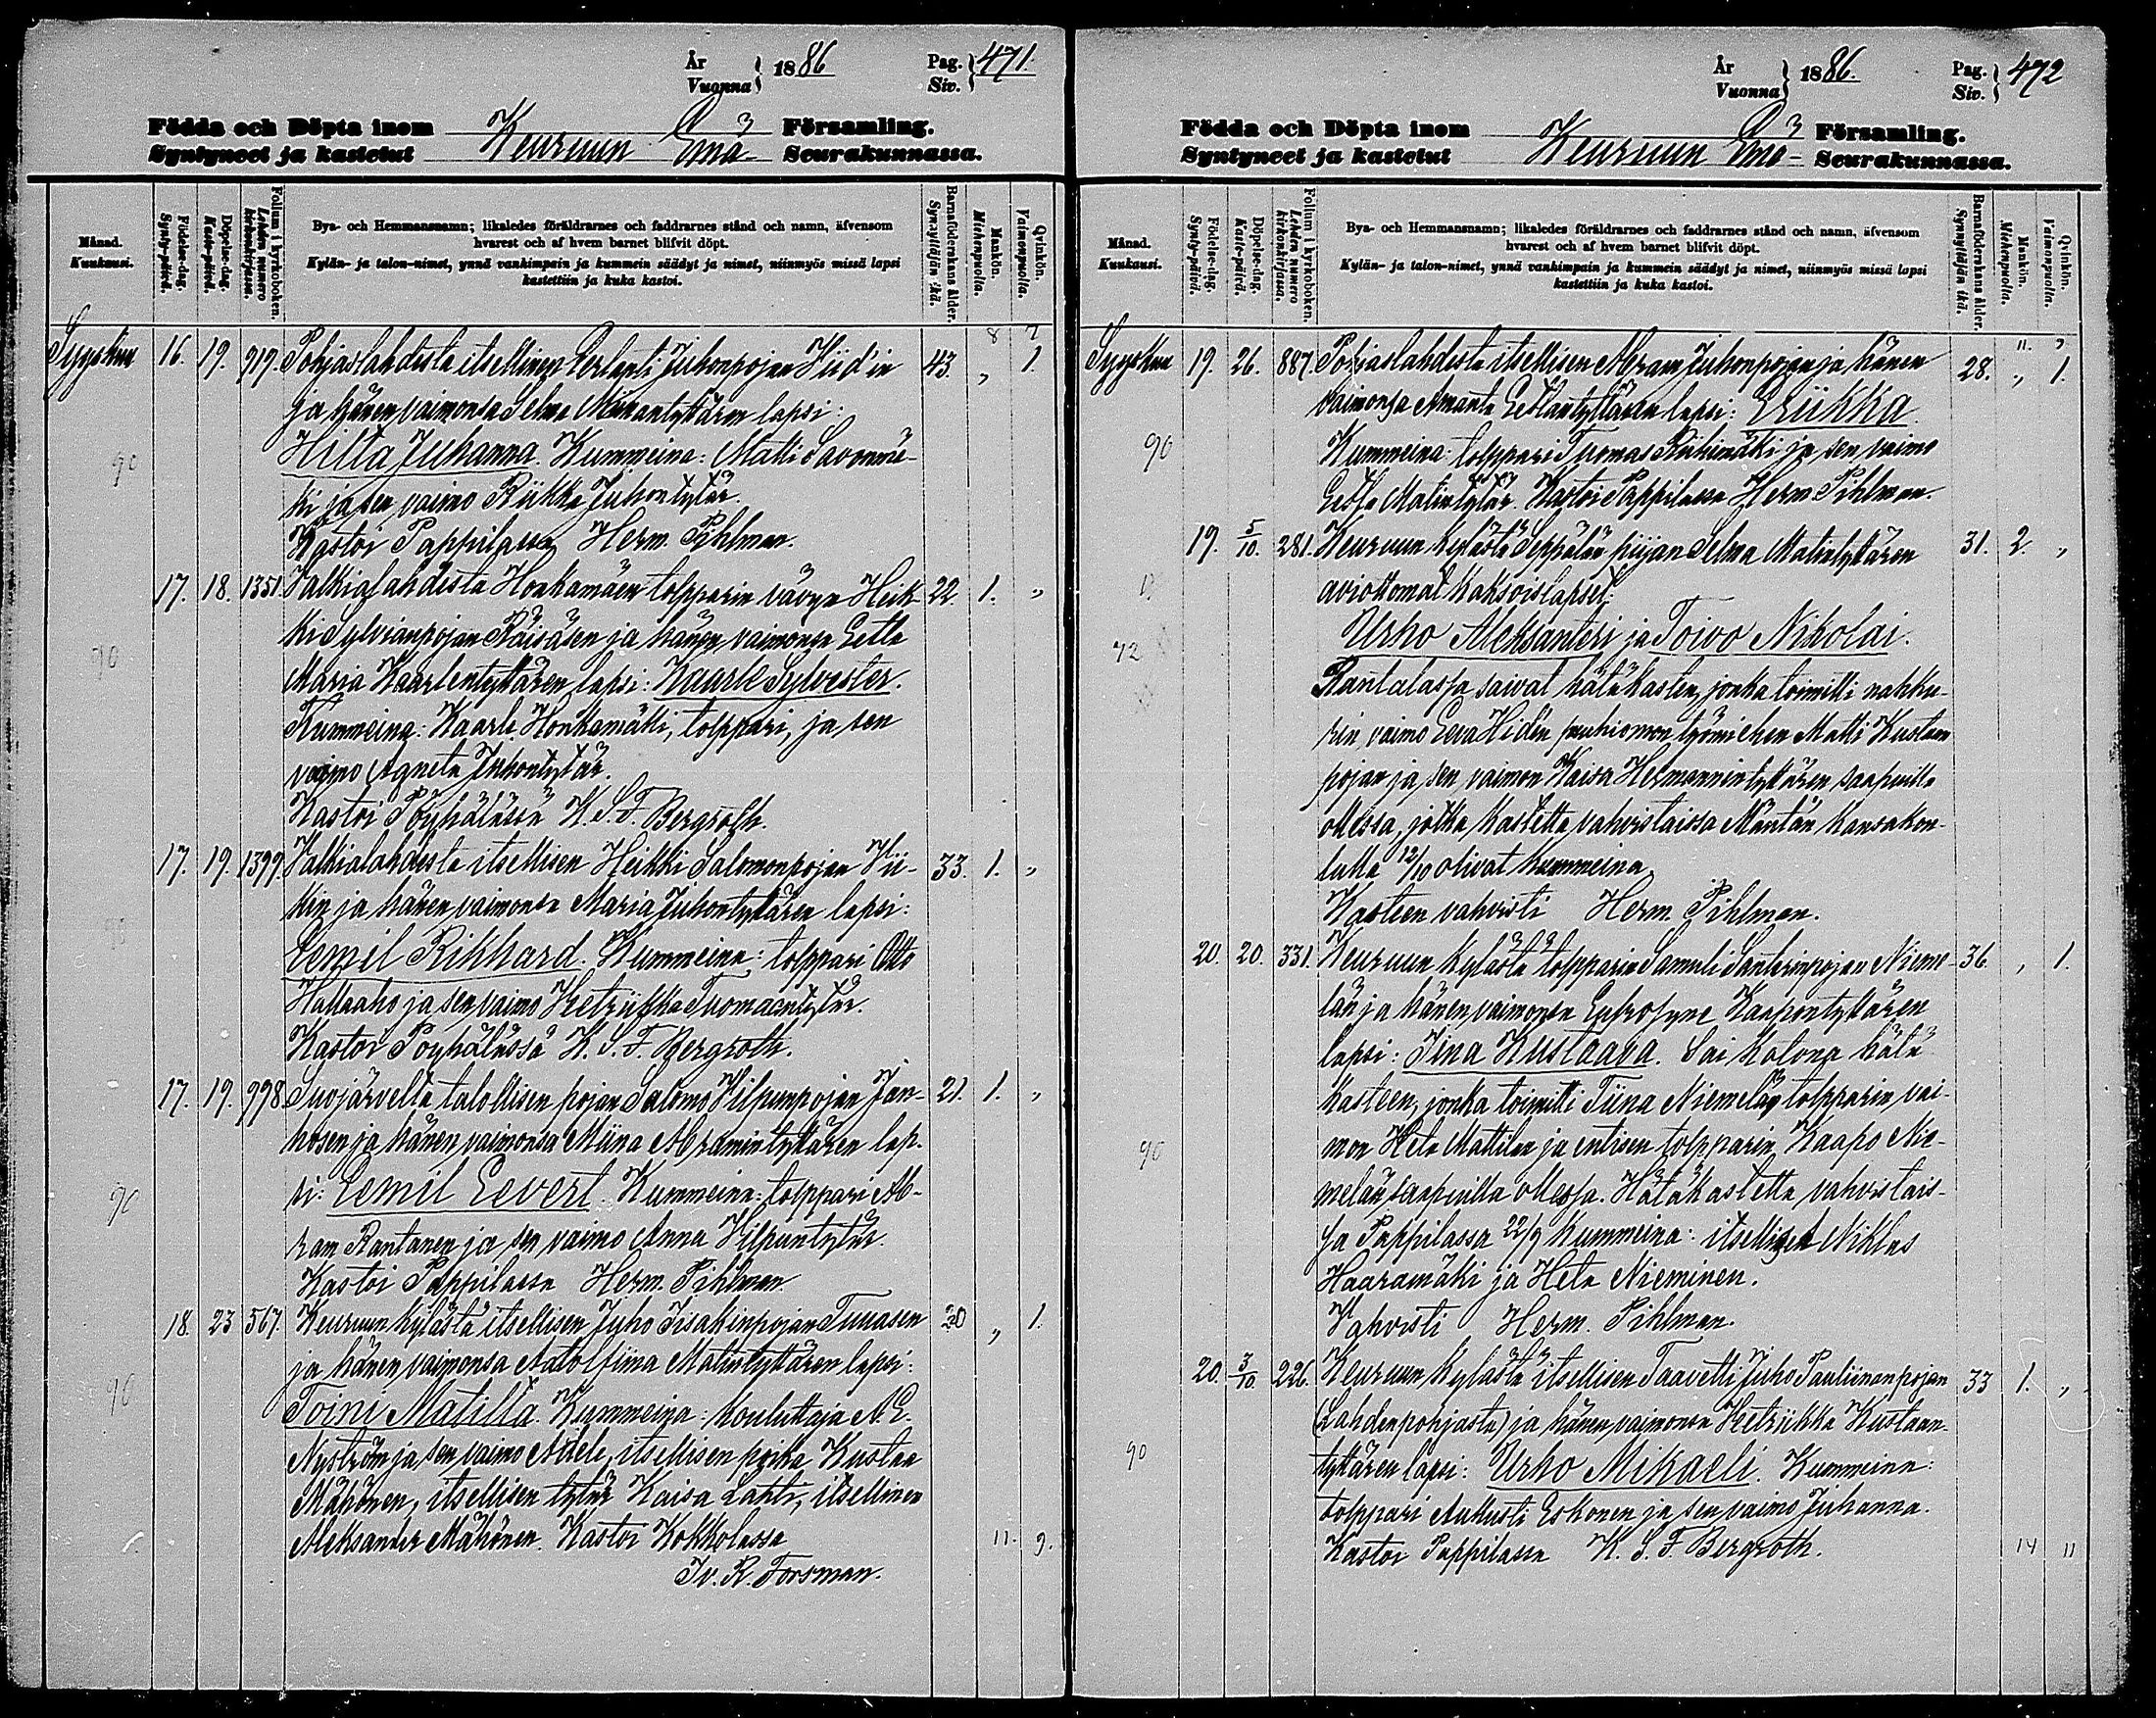 År
Vuonna } 1886 Pag. Siv. } 471.
Födda och Döpta inom
Syntyneet ja kastetut Keuruun Emä- Församling. Seurakunnassa.
Månad. Kuukausi.
Födelse-dag. Synty-päivä.
Döpelse-dag. Kaste-päivä.
Folium i kyrkoboken. Lehden numero kirkonkirjassa.
Bya- och Hemmansnamn; likaledes föräldrarnes och faddrarnes stånd och namn, äfvensom
hvarest och af hvem barnet blifvit döpt.
Kylän- ja talon-nimet, ynnä vanhimpain ja kummein säädyt ja nimet, niinmyös missä lapsi
kastettiin ja kuka kastoi.
Barnaföderskans ålder. Synnyttäjän ikä.
Mankön. Miehenpuolia.
Qvinkön. Vaimonpuolia.
8 7
Syyskuu 16. 19. 717. Pohjaslahdesta itsellisen Juhonpojan Hiid'in 43. „ 1.
ja hänen vaimonsa Selma lapsi:
90 Hilta Juhanna. Kummeina: Matti Savonmä-
ki ja sen vaimo Riikka Juhontytär.
Kastoi Pappilassa Herm. Pihlman.
17. 18. 1351. Valkialahdesta Honkamäen torpparin vävyn Heik- 22. 1. „
ki Sylvianpojan Räisäsen ja hänen vaimonsa Eetla
90 Maria Kaarlentyttären lapsi: Kaarle Sylvester.
Kummeina: Kaarle Honkamäki, torppari, ja sen
vaimo Agneta Juhontytär.
Kastoi Pöyhälässä K. S. F. Bergroth.
17. 19. 1399. Valkialahdesta itsellisen Heikki Salomonpojan Vii- 33. 1. „
kin ja hänen vaimonsa Maria Juhontyttären lapsi:
Eemil Rikhard. Kummeina: torppari Otto
Hallaaho ja sen vaimo Hetriikka Tuomaantytär.
Kastoi Pöyhälässä K. S. F. Bergroth.
17. 19. 998. Suojärveltä talollisen pojan Salomo Vilpunpojan Jan- 21. 1. „
hosen ja hänen vaimonsa Miina Abramintyttären lap-
90 si: Eemil Eevert. Kummeina: torppari Ab-
ram Rantanen ja sen vaimo Anna Vilpuntytär.
Kastoi Pappilassa Herm. Pihlman.
18. 23 567. Keuruun kylästä itsellisen Juho Iisakinpojan Tuuasen 20 „ 1.
ja hänen vaimonsa Adolfiina Matintyttären lapsi:
90 Toini Matilta. Kummeina: kouluttaja A. E.
Nyström ja sen vaimo Adele, itsellisen poika Kustaa
Mähönen, itsellisen tytär Kaisa Lahti, itsellinen
Aleksander Mähönen. Kastoi Kokkolassa 11. 9.
Iv. R. Forsman.
År
Vuonna } 1886. Pag. Siv. } 472
Födda och Döpta inom
Syntyneet ja kastetut Keuruun Emä- Församling. Seurakunnassa.
Månad. Kuukausi.
Födelse-dag. Synty-päivä.
Döpelse-dag. Kaste-päivä.
Folium i kyrkoboken. Lehden numero kirkonkirjassa.
Bya- och Hemmansnamn; likaledes föräldrarnes och faddrarnes stånd och namn, äfvensom
hvarest och af hvem barnet blifvit döpt.
Kylän- ja talon-nimet, ynnä vanhimpain ja kummein säädyt ja nimet, niinmyös missä lapsi
kastettiin ja kuka kastoi.
Barnaföderskans ålder. Synnyttäjän ikä.
Mankön. Miehenpuolia.
Qvinkön. Vaimonpuolia.
11. 9
Syyskuu 19. 26. 887. Pohjaslahdesta itsellisen Abram Juhonpojan ja hänen 28. „ 1.
vaimonsa Amanta lapsi: Eriikka.
90 Kummeina: torppari Tuomas Riihimäki ja sen vaimo
Eetla Matintytär. Kastoi Pappilassa Herm. Pihlman.
19. 5/10. 281. Keuruun kylästä Seppälän piijan Selma Matintyttären 31. 2. „
aviottomat kaksoislapset:
72 Urho Aleksanteri ja Toivo Nikolai.
Rantalassa saivat hätäkasten, jonka toimitti nahku-
rin vaimo Eeva Hiden puuhiomon työmiehen Matti Kustaan
pojan ja sen vaimon Kaisa Hermannintyttären saapuilla
ollessa, jotka kastetta vahvistaissa Mäntän kansakou-
lulla 12/10 olivat kummeina.
Kasteen vahvisti Herm. Pihlman.
20. 20. 331. Keuruun kylästä torpparin Samuli Santerinpojan Nieme- 36. „ 1.
län ja hänen vaimonsa Eufrosyne Kaapontyttären
lapsi: Iina Kustaava. Sai kotona hätä
kasteen, jonka toimitti Tiina Niemelä, torpparin vai-
90 mon Heta Mattilan ja entisen torpparin Kaapo Nie-
melän saapuilla ollessa. Hätäkastetta vahvistais-
sa Pappilassa 22/9 Kummeina: itselliset Niklas
Haaramäki ja Heta Nieminen.
Vahvisti Herm. Pihlman.
20. 3/10. 226. Keuruun kylästä itsellisen Taavetti Juho Pauliinanpojan 33 1. „
(Lahdenpohjasta) ja hänen vaimonsa Hetriikka Kustaan-
90 tyttären lapsi: Urho Mikaeli. Kummeina:
torppari Aukusti Eskonen ja sen vaimo Juhanna.
Kastoi Pappilassa K. S. F. Bergroth. 14 11